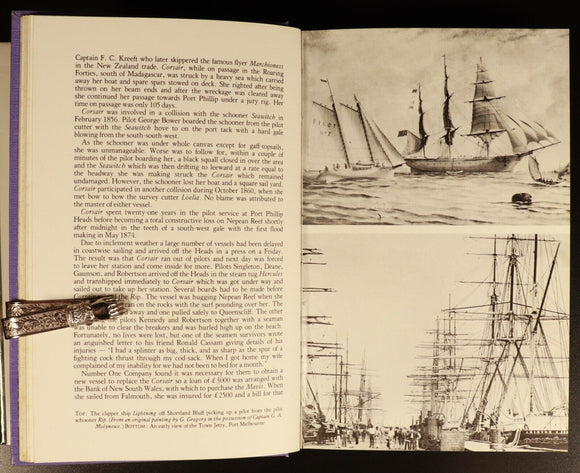 Captain F. C. Kreeft who later skippered the famous flyer Marchioness
in the New Zealand trade. Corsair, while on passage in the Roaring
Forties, south of Madagascar, was struck by a heavy sea which carried
away her boat and spare spars stowed on deck. She righted after being
thrown on her beam ends and after the wreckage was cleared away
she continued her passage towards Port Phillip under a jury rig. Her
time on passage was only 105 days.
Corsair was involved in a collision with the schooner Seawitch in
February 1856. Pilot George Bower boarded the schooner from the pilot
cutter with the Seawitch hove to on the port tack with a hard gale
blowing from the south-south-west.
As the schooner was under whole canvas except for gaff-topsails,
she was unmanageable. Worse was to follow, for within a couple of
minutes of the pilot boarding her, a black squall closed in over the area
and the Seawitch which was then drifting to leeward at a rate equal to
the headway she was making struck the Corsair which remained
undamaged. However, the schooner lost her boat and a square sail yard.
Corsair participated in another collision during October 1860, when she
met bow to bow the survey cutter Loelia. No blame was attributed to
the master of either vessel.
Corsair spent twenty one years in the pilot service at Port Phillip
Heads before becoming a total constructive loss on Nepean Reef shortly
after midnight in the teeth of a south-west gale with the first flood
making in May 1874.
Due to inclement weather a large number of vessels had been delayed
in coastwise sailing and arrived off the Heads in a press on a Friday.
The result was that Corsair ran out of pilots and next day was forced
to leave her station and come inside for more. Pilots Singleton, Deane,
Gaunson, and Robertson arrived off the Heads in the steam tug Hercules
and transhipped immediately to Corsair which got under way and
sailed out to take up her station. Several boards had to be made before
the Rip. The vessel was hugging Nepean Reef when she
ran on the rocks with the surf pounding over her. The
away and one pilled safely to Queenscliff. The other
pilots Kennedy and Robertson together with a seaman
was unable to clear the breakers and was hurled high up on the beach.
Fortunately, no lives were lost, but one of the seamen survivors wrote
an anguished letter to his friend Ronald Cassam giving details of his
injuries — 'I had a splinter as big, thick, and as sharp as the spur of a
fighting cock thrust through my cod-sack. When I got home my wife
complained of my inability for we had not been to bed for a month.
Number One Company found it was necessary for them to obtain a
new vessel to replace the Corsair so a loan of £3000 was arranged with
the Bank of New South Wales, with which to purchase the Mavis. When
she sailed from Falmouth, she was insured for £2500 and a bill for that
TOP: The clipper ship Lightning off Shortland Bluff picking up a pilot from the pilot
schooner Rip. (From an original painting by G. Gregory in the possession of Captain G. A.
Molyneux.) BOTTOM: An early view of the Town Jetty, Port Melbourne